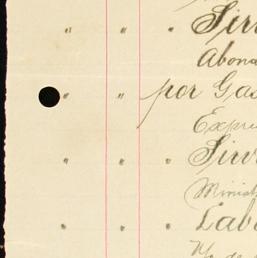 " " " Sirv
Abona
" " por Gas
Expre
" " " Sirv
Minist
" " " Labo